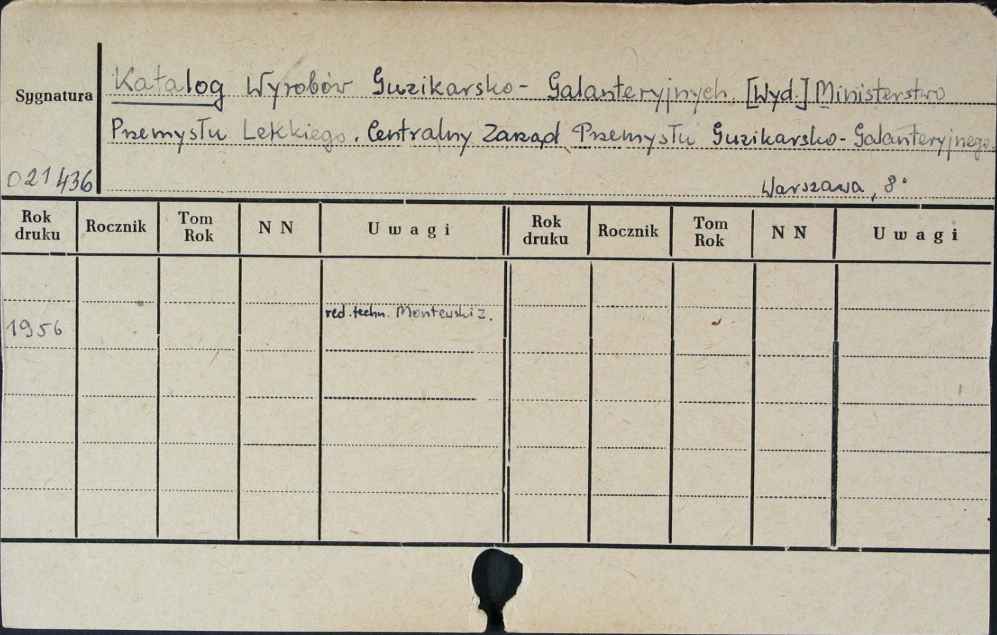 Sygnatura
Katalog Wyrobów Guzikarsko-Galanteryjnych. [Wyd.] Ministerstwo
Przemysłu Lekkiego. Centralny Zarząd Przemysłu Guzikarsko-Galanteryjnego.
021436
Warszawa, 8°
Rok druku Rocznik Tom Rok N N Uwagi Rok druku Rocznik Tom Rok N N Uwagi
1956 red. techn. Montewski Z.